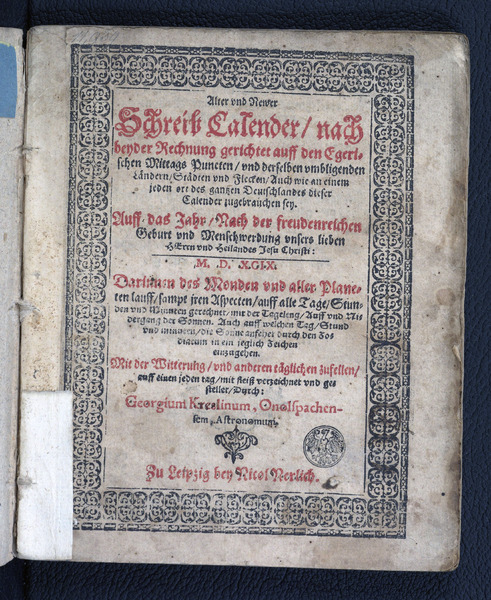 Alter vnd Newer
Schreib Calender / nach
beyder Rechnung gerichtet auff den Egeri-
schen Mittags Puncten / vnd derselben vmbligenden
Ländern / Städten vnd Flecken / Auch wie an einem
jeden ort des gantzen Deutschlandes dieser
Calender zugebrauchen sey.
Auff das Jahr / Nach der freudenreichen
Geburt vnd Menschwerdung vnsers lieben
HErrn vnd Heilandes Jesu Christi:
M. D. XCIX.
Darinnen des Monden vnd aller Plane-
ten lauff / sampt jren Aspecten / auff alle Tage / Stun-
den vnd Minuten gerechnet / mit der Tageleng / Auff vnd Ni-
dergang der Sonnen. Auch auff welchen Tag / Stund
vnd minuten / die Sonne anfehet durch den Zo-
diacum in ein jeglich Zeichen
einzugehen.
Mit der Witterung / vnd anderen täglichen zufellen /
auff einen jeden tag / mit fleiß verzeichnet vnd ge-
stellet / Durch:
Georgium Kreslinum, Onolspachen-
sem, Astronomum.
Zu Leipzig bey Nicol Nerlich.